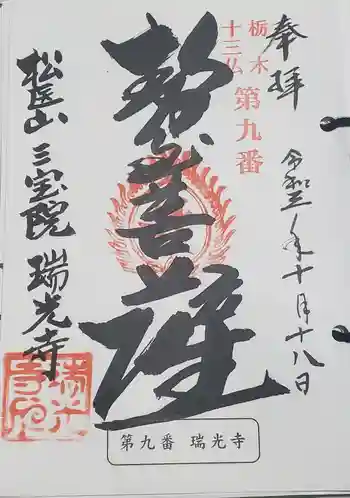 奉拝
令和三年十月十八日
栃木
十三仏
第九番
勢至菩薩
松医山 三宝院 瑞光寺
瑞光
寺印
第九番 瑞光寺